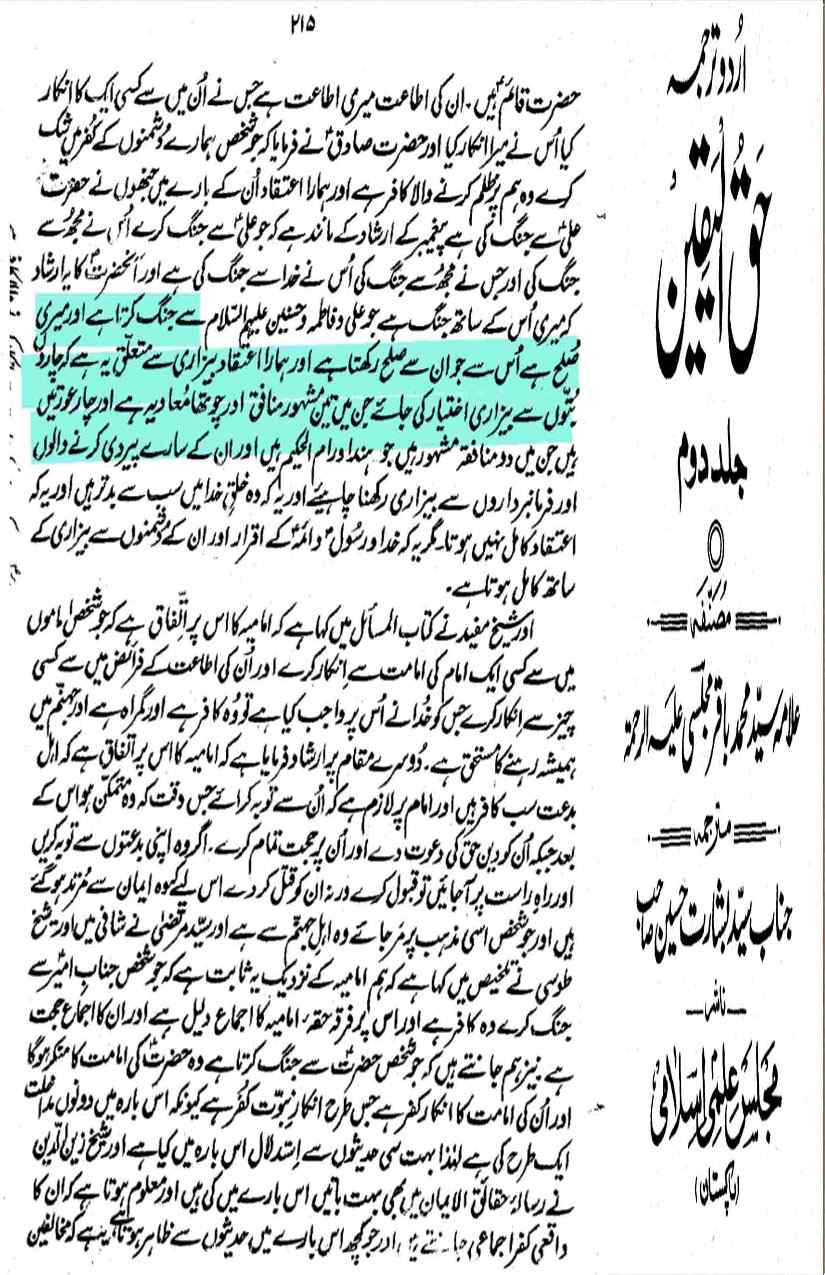 ۲۱۵
حضرت قائمؑ ہیں۔ ان کی اطاعت میری اطاعت ہے جس نے اُن میں سے کسی ایک کا انکار
کیا اُس نے میرا انکار کیا اور حضرت صادقؑ نے فرمایا کہ جو شخص ہمارے دشمنوں کے کفر میں شک
کرے وہ ہم پر ظلم کرنے والا کافر ہے اور ہمارا اعتقاد اُن کے بارے میں جنھوں نے حضرت
علیؑ سے جنگ کی ہے پیغمبر کے ارشاد کے مانند ہے کہ جو علیؑ سے جنگ کرے اُس نے مجھ سے
جنگ کی اور جس نے مجھ سے جنگ کی اُس نے خدا سے جنگ کی ہے اور آنحضرتؐ کا یہ ارشاد
کہ میری اُس کے ساتھ جنگ ہے جو علی و فاطمہ و حسنین علیہم السّلام سے جنگ کرتا ہے اور میری
صُلح ہے اُس سے جو ان سے صلح رکھتا ہے اور ہمارا اعتقاد بیزاری سے متعلّق یہ ہے کہ چاروں
بُتوں سے بیزاری اختیار کی جائے جن میں تین مشہور منافق اور چوتھا مُعاویہ ہے اور چار عورتیں
ہیں جن میں دو منافقہ مشہور ہیں جو ہندا اور ام الحکیم ہیں اور ان کے سارے پیروی کرنے والوں
اور فرمانبرداروں سے بیزاری رکھنا چاہیئے اور یہ کہ وہ خلقِ خدا میں سب سے بدتر ہیں اور یہ کہ
اعتقاد کامل نہیں ہوتا۔ مگر یہ کہ خدا و رسُولؐ و ائمہؑ کے اقرار اور ان کے دُشمنوں سے بیزاری کے
ساتھ کامل ہوتا ہے۔
اور شیخ مفید نے کتاب المسائل میں کہا ہے کہ امامیہ کا اس پر اتّفاق ہے کہ جو شخص اماموں
میں سے کسی ایک امام کی امامت سے اِنکار کرے اور اُن کی اطاعت کے فرائض میں سے کسی
چیز سے انکار کرے جس کو خُدا نے اُس پر واجب کیا ہے تو وُہ کافر ہے اور گمراہ ہے اور جہنّم میں
ہمیشہ رہنے کا مستحق ہے۔ دُوسرے مقام پر ارشاد فرمایا ہے کہ امامیہ کا اس پر اتّفاق ہے کہ اہلِ
بدعت سب کافر ہیں اور امام پر لازم ہے کہ اُن سے توبہ کرائے جس وقت کہ وہ متمکّن ہو اس کے
بعد جبکہ اُن کو دینِ حق کی دعوت دے اور اُن پر حجت تمام کرے۔ اگر وہ اپنی بدعتوں سے توبہ کریں
اور راہِ راست پر آجائیں تو قبول کرے ورنہ ان کو قتل کر دے اس لیے کہ وہ ایمان سے مُرتد ہوگئے
ہیں اور جو شخص اسی مذہب پر مَر جائے وہ اہلِ جہنّم سے ہے اور سیّد مرتضیٰ نے شافی میں اور شیخ
طوسی نے تلخیص میں کہا ہے کہ ہم امامیہ کے نزدیک یہ ثابت ہے کہ جو شخص جناب امیرؑ سے
جنگ کرے وہ کافر ہے اور اس پر فرقہ حقہ امامیہ کا اجماع دلیل ہے اور ان کا اجماع حجت
ہے۔ نیز ہم جانتے ہیں کہ جو شخص حضرتؑ سے جنگ کرتا ہے وہ حضرتؑ کی امامت کا منکر ہوگا
اور اُن کی امامت کا انکار کفر ہے جس طرح انکارِ نبوّت کفر ہے کیونکہ اس بارہ میں دونوں مداخلت
ایک طرح کی ہے لہٰذا بہت سی حدیثوں سے اِستدلال اس بارہ میں کیا ہے اور شیخ زین الدّین
نے رسالۂ حقائق الایمان میں بھی بہت باتیں اس بارے میں کی ہیں اور معلوم ہوتا ہے کہ ان کا
واقعی کفر اجماعی جانتے ہیں اور جو کچھ اس بارے میں حدیثوں سے ظاہر ہوتا ہے یہ ہے کہ مخالفین
اُردو ترجمہ
حَقُّ الیَقِین
جلد دوم
مُصنّفہ
علامہ سیّد محمد باقر مجلسی علیہ الرحمۃ
مترجمہ
جناب سیّد بشارت حسین صاحب
ناشر
مجلسِ علمی اسلامی
(پاکستان)